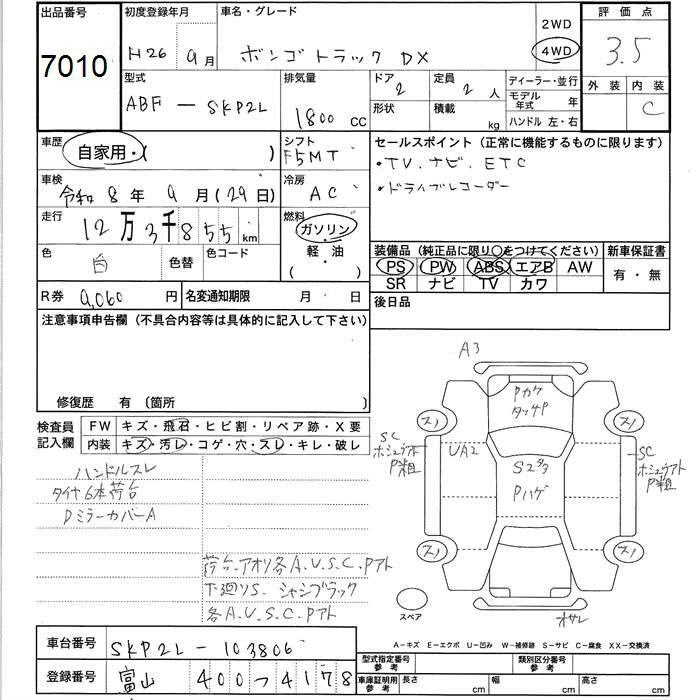 出品番号
7010
初度登録年月
H26 9月
車名・グレード
ボンゴトラック DX
2WD
4WD
評価点
3.5
外装 内装
C
型式
ABF - SKP2L
排気量
1800 CC
ドア
2
定員
2 人
形状
積載
kg
ディーラー・並行
モデル年式 年
ハンドル 左・右
車歴
自家用・( )
シフト
F5MT
車検
令和 8年 9月(29日)
冷房
AC
走行
12万3千855km
燃料
ガソリン
・
軽・油
( ・ )
色
白
色替
色コード
R券 9,060円
名変通知期限 月 日
セールスポイント(正常に機能するものに限ります)
・TV.ナビ.ETC
・ドライブレコーダー
装備品(純正品に限り○をつけてください)
PS PW ABS エアB AW
SR ナビ TV カワ
新車保証書
有・無
後日品
注意事項申告欄(不具合内容等は具体的に記入して下さい)
修復歴 有(箇所 )
検査員記入欄
FW キズ・飛石・ヒビ割・リペア跡・X要
内装 キズ・汚レ・コゲ・穴・スレ・キレ・破レ
ハンドルスレ
タイヤ6本荷台
DミラーカバーA
荷台.アオリ各A.U.S.C.Pアト
下廻りS. シャシブラック
各A.U.S.C.Pアト
A3
Pカケ
タッチP
スノ
スノ
SC
P粗
UA2
S2タヌ
Pハゲ
SC
P粗
スノ
スノ
スペア
オサレ
A−キズ E−エクボ U−凹み W−補修跡 S−サビ C−腐食 XX−交換済
車台番号 SKP2L - 103806
登録番号 富山 400 つ 4178
型式指定番号
参考
類別区分番号
参考
車庫証明用
参考
長さ cm
幅 cm
高さ cm